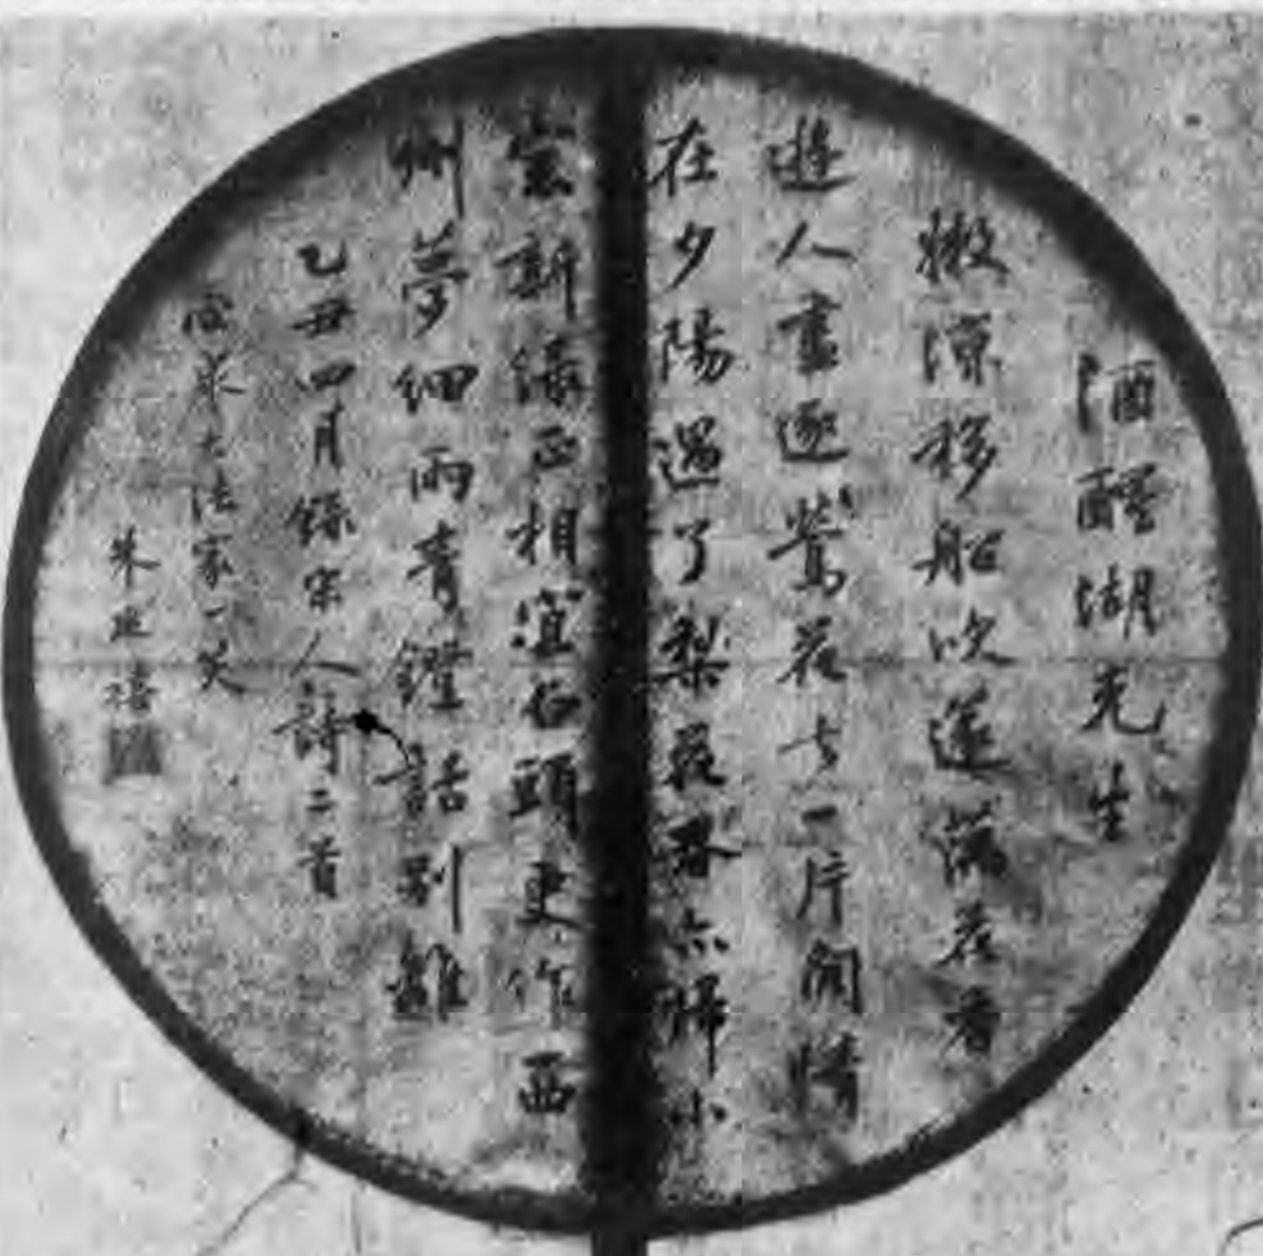 酒醒湖光生
嫩涼移船吹篴花香
遊人盡逐鶯花去一片閒情
在夕陽過了梨花春亦歸小
窗新綠正相宜石頭更作西
州夢細雨青鐙話別離
乙丑四月錄宋人詩二首
大法家一笑
朱禧